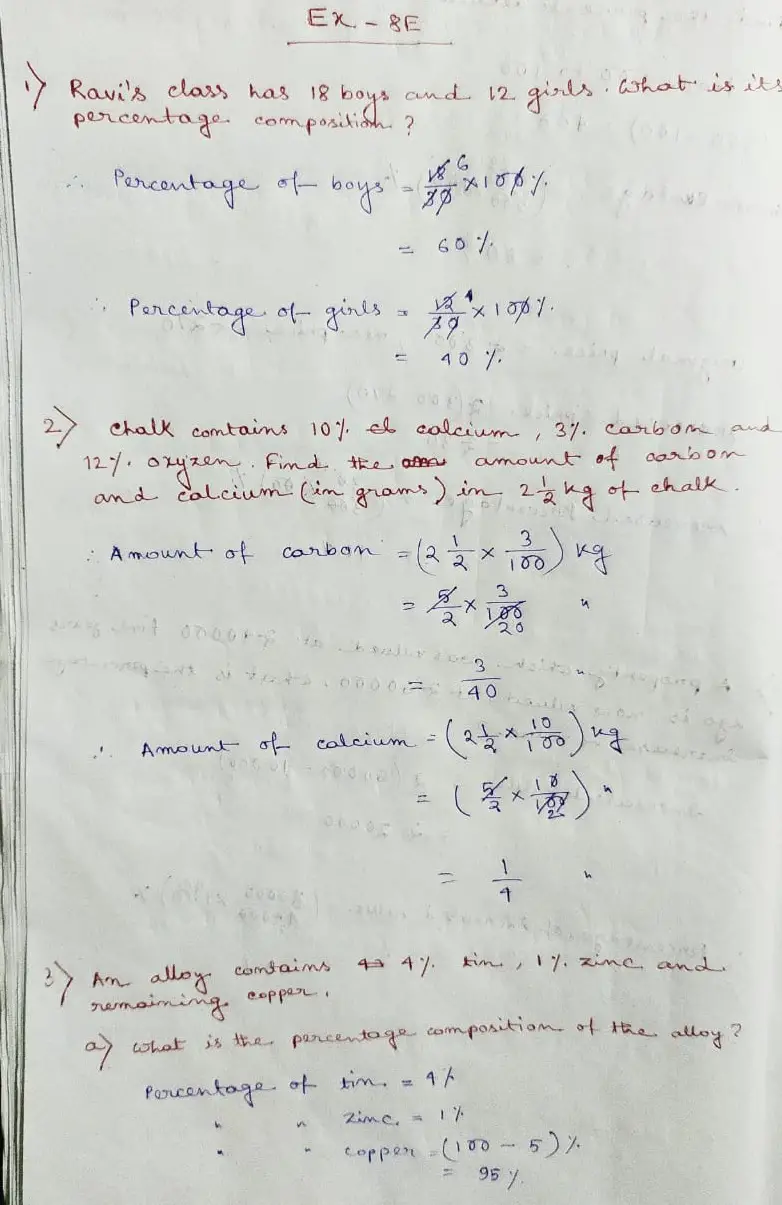 Ex - 8E
1) Ravi's class has 18 boys and 12 girls. What is its
percentage composition ?
∴ Percentage of boys = 18/30 6 × 100 %.
= 60 %.
∴ Percentage of girls = 12/30 4 × 100 %.
= 40 %.
2) Chalk contains 10 %. calcium, 3 %. carbon and
12 %. oxyzen. Find the amount of carbon
and calcium (in grams) in 2 1/2 kg of chalk.
∴ Amount of carbon = (2 1/2 × 3/100) kg
= 5/2 × 3/100 20 "
= 3/40 "
∴ Amount of calcium = (2 1/2 × 10/100) kg
= (5/2 × 10/100) "
= 1/4 "
3) An alloy contains 4 %. tin, 1 %. zinc and
remaining copper.
a) What is the percentage composition of the alloy ?
Percentage of tin = 4 %
" " zinc = 1 %
" " copper = (100 - 5) %.
= 95 %.